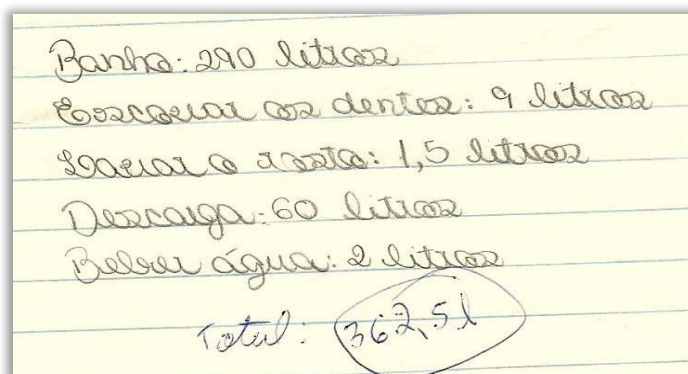 Banho: 290 litros
Escovar os dentes: 9 litros
Lavar o rosto: 1,5 litros
Descarga: 60 litros
Beber água: 2 litros
Total: 362,5 l